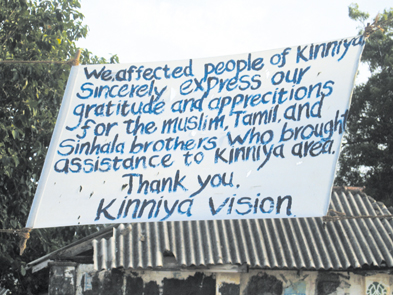 We, affected people of Kinniya
Sincerely express our
gratitude and apprecitions
for the muslim, Tamil, and
Sinhala brothers who brought
assistance to Kinniya area.
Thank you.
Kinniya vision